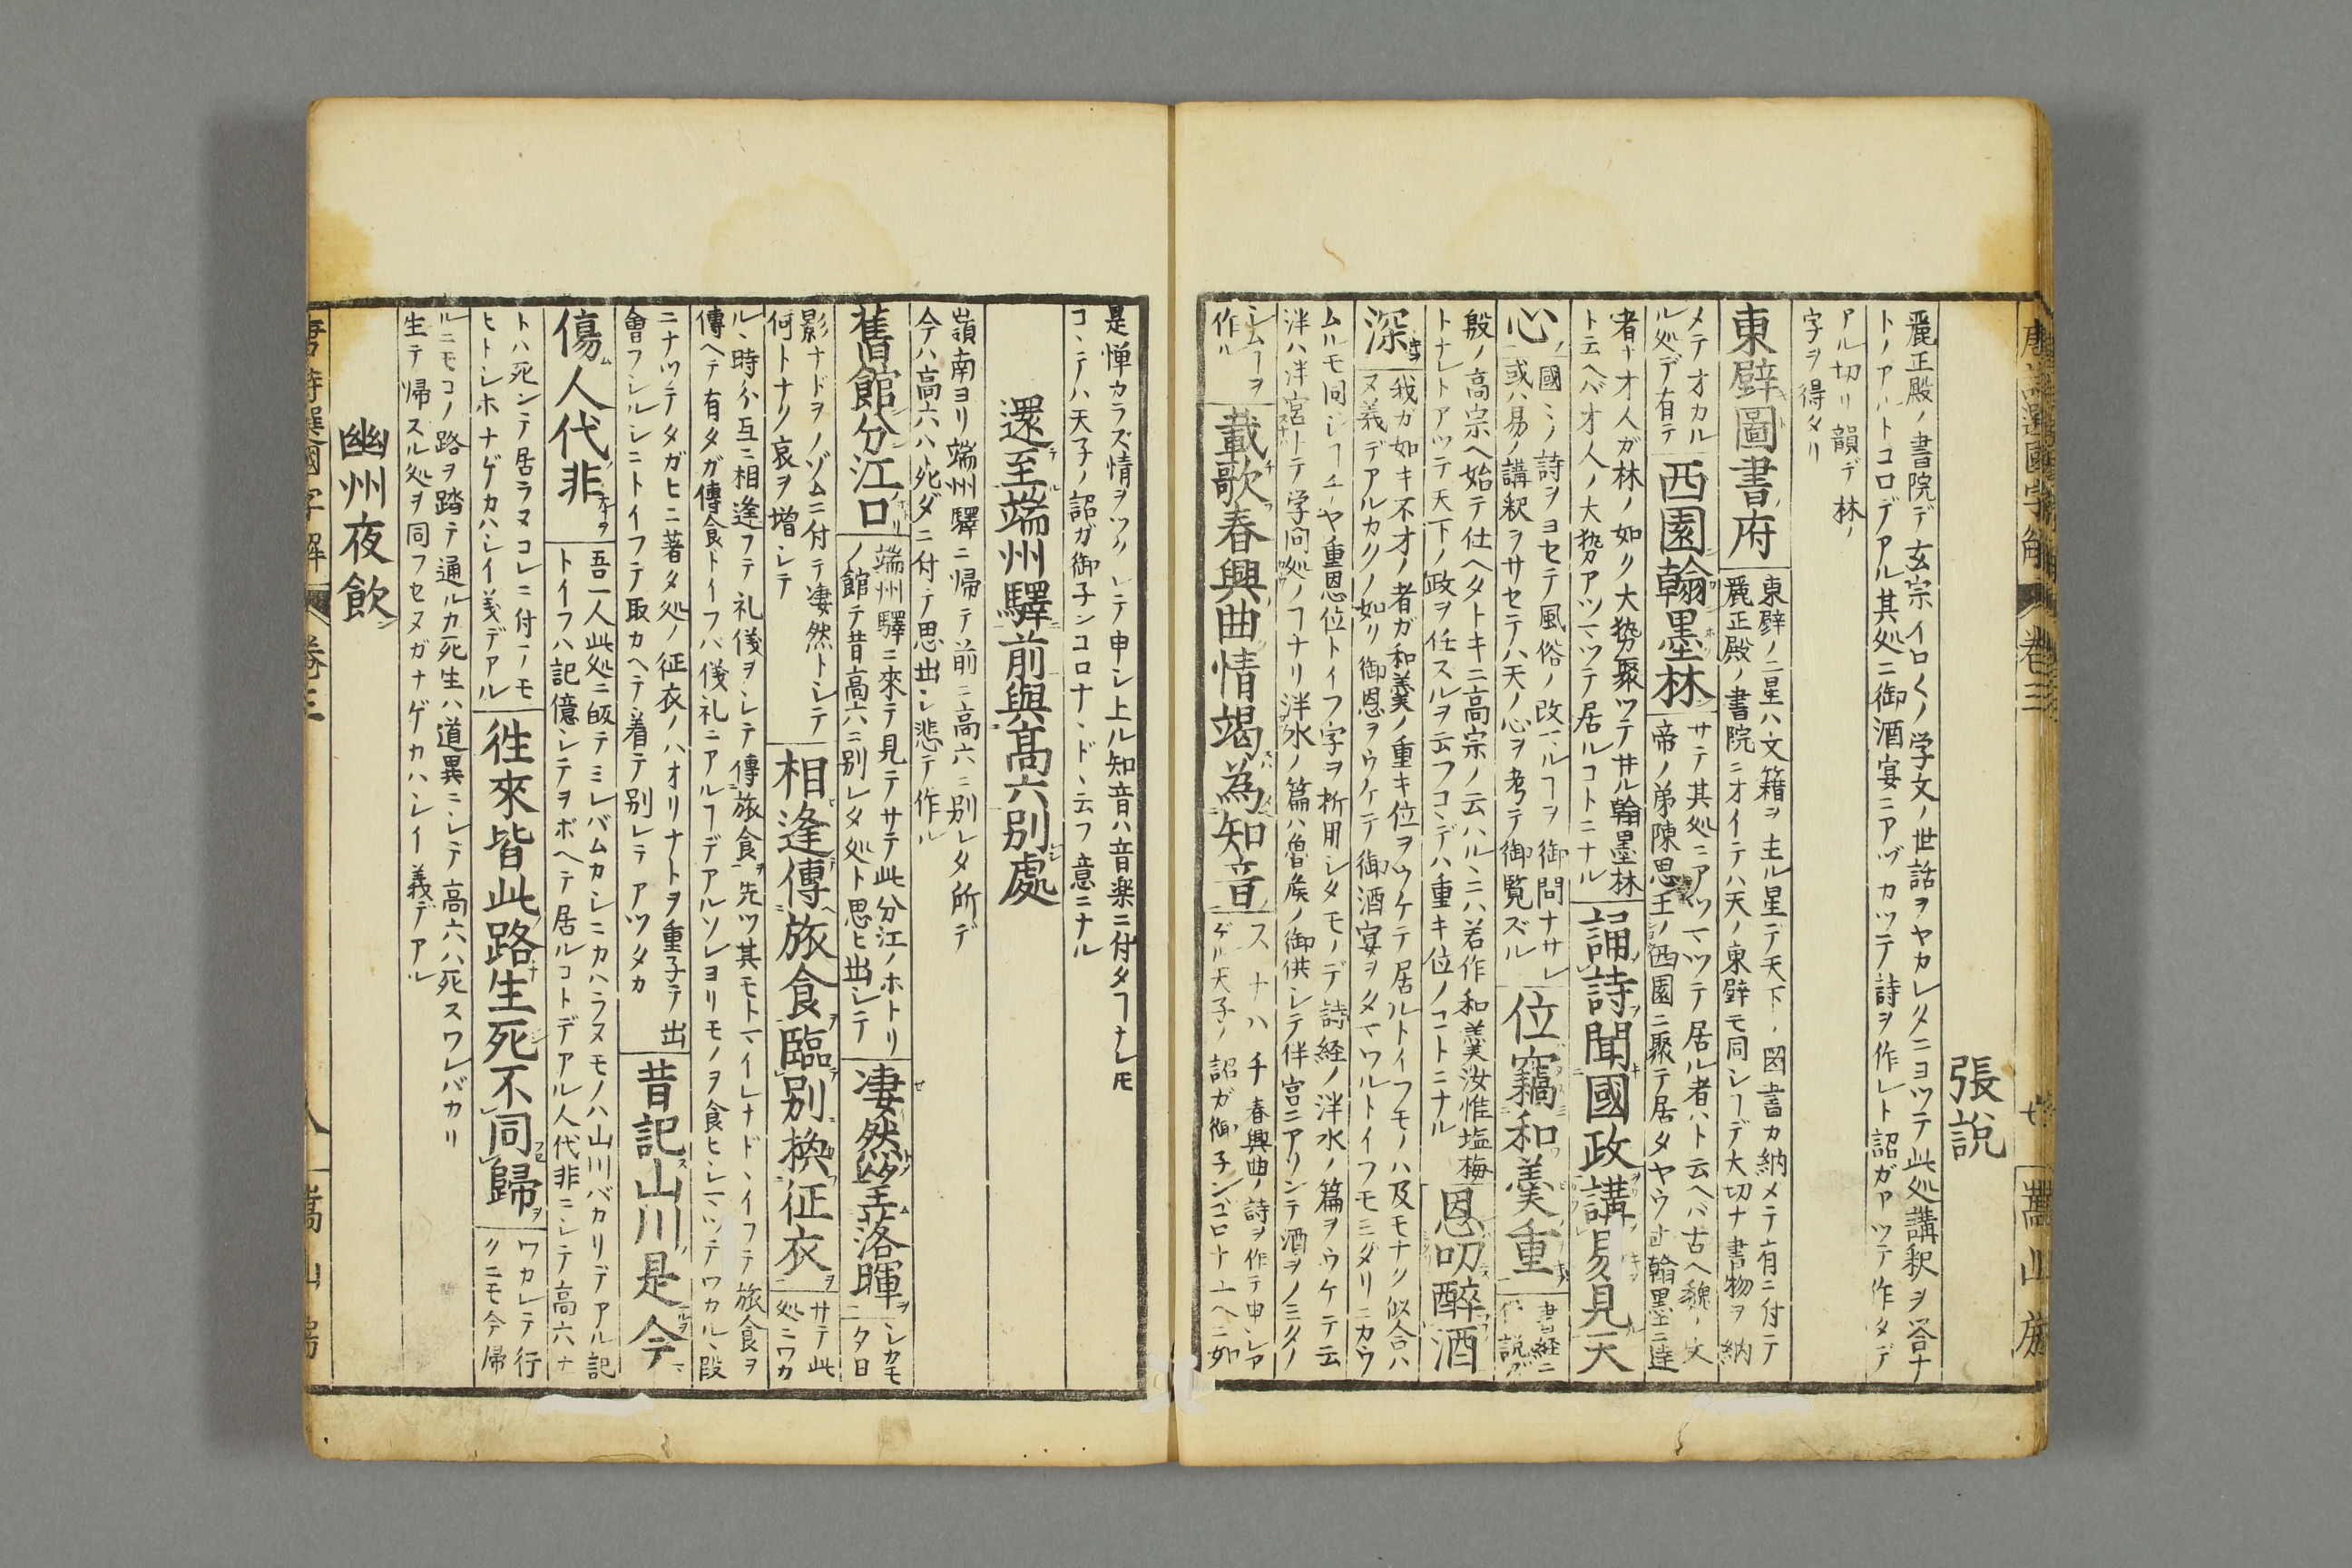 唐詩選國字解 卷三 七 嵩山房
張說
麗正殿ノ書院デ玄宗イロ〱ノ学文ノ世話ヲヤカレタニヨツテ此処講釈ヲ咨ナ
トノアルトコロデアル其処ニ御酒宴ニアヅカツテ詩ヲ作レト詔ガアツテ作タデ
アル切リ韻デ林ノ
字ヲ得タリ
東壁圖書府
東壁ノ二星ハ文籍ヲ主ル星デ天下ノ図書カ納メテ有ニ付テ
麗正殿ノ書院ニオイテハ天ノ東壁モ同シヿデ大切ナ書物ヲ納
メテオカル
ル処デ有テ
西園翰墨林
サテ其処ニアツマツテ居ル者ハト云ヘバ古ヘ魏ノ文
帝ノ弟陳思王ノ西園ニ聚テ居タヤウニ翰墨ニ達
者ナオ人ガ林ノ如ク大勢聚ツテ井ル翰墨林
ト云ヘバオ人ノ大勢アツマツテ居ルコトニナル
誦詩聞國政講易見天
心
國〻ノ詩ヲヨセテ風俗ノ改マルヿヲ御問ナサレ
或ハ易ノ講釈ヲサセテハ天ノ心ヲ考テ御覧ズル
位竊和羹重
書経ニ
説ガ
殷ノ高宗ヘ始テ仕ヘタトキニ高宗ノ云ハルヽニハ若作和羹汝惟塩梅
トナレトアツテ天下ノ政ヲ任スルヲ云フコヽデハ重キ位ノコトニナル
恩叨醉酒
深
我ガ如キ不オノ者ガ和羹ノ重キ位ヲウケテ居ルトイフモノハ及モナク似合ハ
ヌ義デアルカクノ如リ御恩ヲウケテ御酒宴ヲタマワルトイフモミダリニカウ
ムルモ同ジヿヂヤ重恩位トイフ字ヲ折用シタモノデ詩経ノ泮水ノ篇ヲウケテ云
泮ハ泮宮トテ学問処ノヿナリ泮水ノ篇ハ魯侯ノ御供シテ伴宮ニアリンテ酒ヲノミタノ
シムヿヲ
作ル
載歌春興曲情竭為知音
スナハチ春興曲ノ詩ヲ作テ申シア
ゲル天子ノ詔ガ御子ンゴロナユヘニ如
是惮カラズ情ヲツクシテ申シ上ル知音ハ音楽ニ付タヿナレ𪜈
コヽテハ天子ノ詔ガ御子ンコロナヽドヽ云フ意ニナル
還至端州驛前與髙六別處
嶺南ヨリ端州驛ニ帰テ前ニ高六ニ別レタ所デ
今ハ高六ハ死ダニ付テ思出シ悲テ作ル
舊館分江口
端州驛ニ來テ見テサテ此分江ノホトリ
ノ館テ昔高六ニ別レタ処ト思ヒ出シテ
凄然望落暉
シカモ
夕日
影ナドヲノゾムニ付テ凄然トシテ
何トナク哀ヲ増シテ
相逢傳旅食臨別換征衣
サテ此
処ニワカ
ルヽ時分互ニ相逢フテ礼儀ヲシテ傳旅食ヲ先ツ其モトマイレナドヽイフテ旅食ヲ
傳ヘテ有タガ傳食トイフハ儀礼ニアルヿデアルソレヨリモノヲ食ヒシマツテワカルヽ段
ニナツテタガヒニ著タ処ノ征衣ノハオリナトヲ重子テ出
會フシルシニトイフテ取カヘテ着テ別レテアツタカ
昔記山川是今
傷人代非
吾一人此処ニ皈テミレバムカシニカハラヌモノハ山川バカリデアル記
トイフハ記億シテヲボヘテ居ルコトデアル人代非ニシテ高六ナ
トハ死ンテ居ラヌコレニ付テノモ
ヒトシホナゲカハシイ義デアル
徃來皆此路生死不同歸
ワカレテ行
クニモ今帰
ルニモコノ路ヲ踏テ通ルカ死生ハ道異ニシテ高六ハ死スワレバカリ
生テ帰スル処ヲ同フセヌガナゲカハシイ義デアル
幽州夜飲
唐詩選國字解 卷三 八 嵩山房